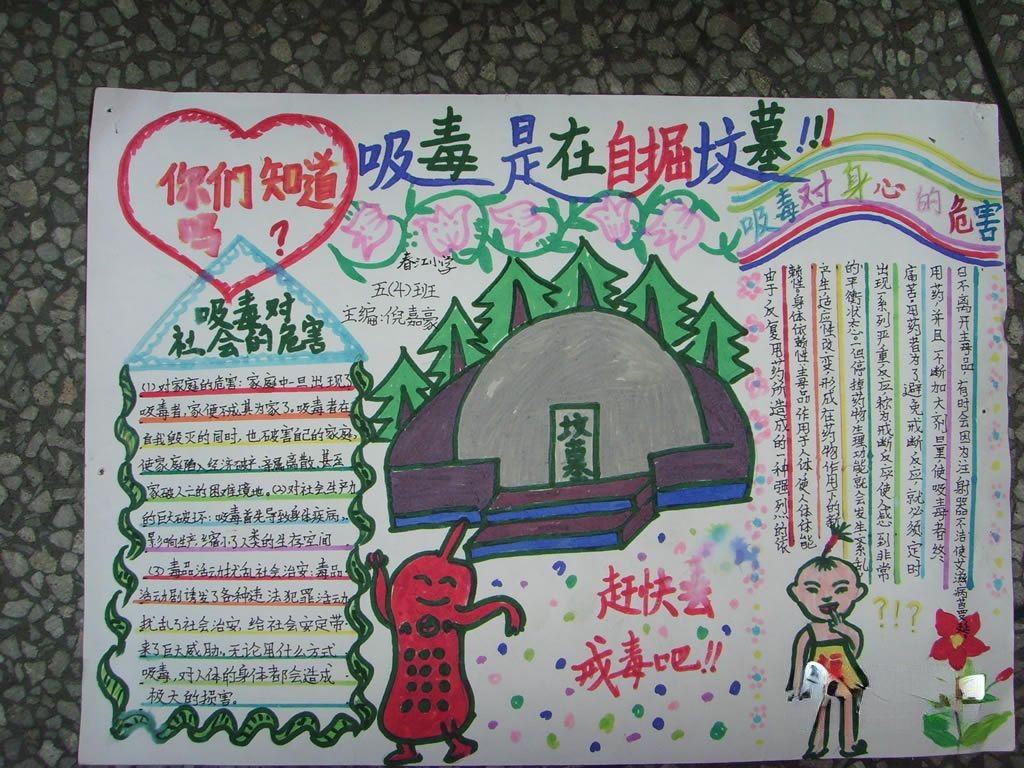 吸毒是在自掘坟墓!!!
你们知道
吗?
春江小学
五(4)班
主编:倪嘉豪
吸毒对
社会的危害
(1)对家庭的危害:家庭中一旦出现了
吸毒者,家便不成其为家了。吸毒者在
自我毁灭的同时,也破害自己的家庭,
使家庭陷入经济破产、亲属离散、甚至
家破人亡的困难境地。(2)对社会生产力
的巨大破坏:吸毒首先导致身体疾病,
影响生产,缩小了人类的生存空间
(3)毒品活动扰乱社会治安:毒品
活动剧诱发了各种违法犯罪活动,
扰乱了社会治安,给社会安定带
来了巨大威胁。无论用什么方式
吸毒,对人体的身体都会造成
极大的损害。
坟墓
赶快去
戒毒吧!!
吸毒对身心的危害
日不离开主毒品。有时会因为注射器不洁使艾滋病
用药,并且一不断加大剂量使吸毒者终
痛苦。用药者为了避免戒断反应,就必须定时
出现一系列严重反应,称为戒断反应,使人感到非常
的平衡状态。一但停掉药物,生理功能就会发生紊乱,
产生适应性改变,形成在药物作用下的新
赖性。身体依赖性主毒品作用于人体,使人体体能
由于反复用药所造成的一种强烈的依
?!?